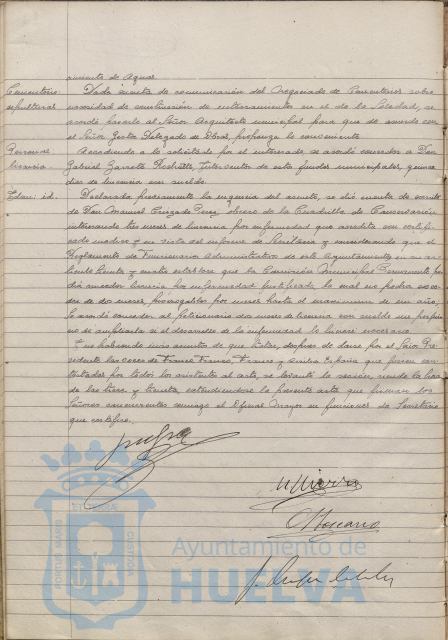 aumento de Aguas.
Cementerio sepulturas Dada cuenta de comunicación del Negociado de Cementerios sobre
necesidad de continuación de enterramientos en el de la Soledad, se
acordó pasarlo al Señor Arquitecto municipal para que de acuerdo con
el Señor Gestor Delegado de Obras, proponga lo conveniente.
Personal licencia. Accediendo a lo solicitado por el interesado, se acordó conceder a Don
Gabriel Barreto Interventor de estos fondos municipales, quince
dias de licencia con sueldo.
Idem: id. Declarada previamente la urgencia del asunto, se dió cuenta de escrito
de Don Manuel Cruzado Perez, obrero de la Cuadrilla de Conservación
interesando tres meses de licencia por enfermedad que acredita con certifi-
cado medico y en vista del informe de Secretaria y considerando que el
Reglamento de Funcionarios Administrativos de este Ayuntamiento en su ar-
ticulo treinta y cuatro establece que la Comisión Municipal Permanente po-
drá conceder licencia por enfermedad justificada la cual no podrá exce-
der de dos meses, prorrogables por meses hasta el maximum de un año,
se acordó conceder al peticionario dos meses de licencia con sueldo sin perjui-
cio de ampliarla si el desarrollo de la enfermedad lo hiciere necesario.
Y no habiendo mas asuntos de que tratar, despues de darse por el Señor Pre-
sidente las voces de Franco Franco Franco y Arriba España que fueron con-
testadas por todos los asistentes al acto, se levantó la sesión, siendo la hora
de las trece y treinta, extendiendose la presente acta que firman los
Señores concurrentes conmigo el Oficial Mayor en funciones de Secretario
que certifico.
PORTUS MARIS ET TERRAE CUSTODIA
Ayuntamiento de
HUELVA